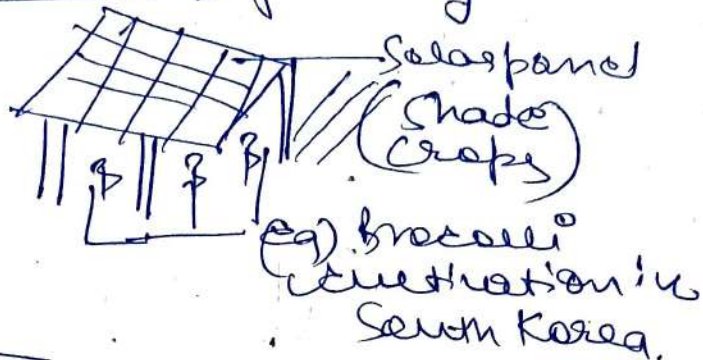 Solar panel
(Shade
Crops)
(Eg) Broccoli
cultivation in
South Korea.